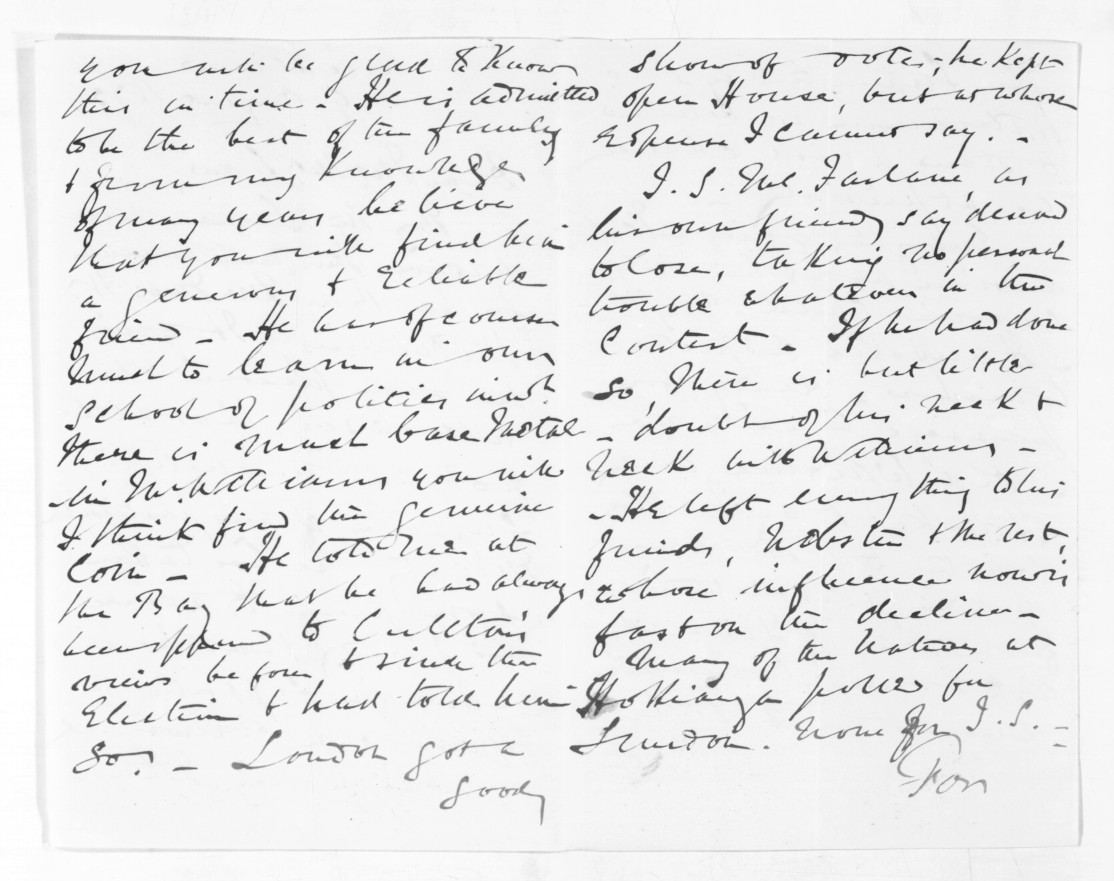 you will be glad to know
this in time - He is admitted
to be the best of the family
& from my knowledge
of many years believe
that you will find him
a generous & reliable
friend - He has of course
much to learn in our
school of politics in wh.
there is much base metal
- in McWilliams you will
I think find the genuine
Coin - He told me at
the Bay that he had always
been opposed to
views before & since the
Election & had told him
so. - London got a
good
show of votes, he kept
open House, but at whose
expense I cannot say. -
J. S. McFarlane, as
his own friends say deserved
to lose, taking no personal
trouble whatever in the
Contest - If he had done
so, there is but little
- doubt of his neck &
neck with Williams -
- He left everything to his
friends, Webster & the rest,
whose influence now is
fast on the decline -
Many of the Natives at
Hokianga polled for
London. None for J. S. -
For